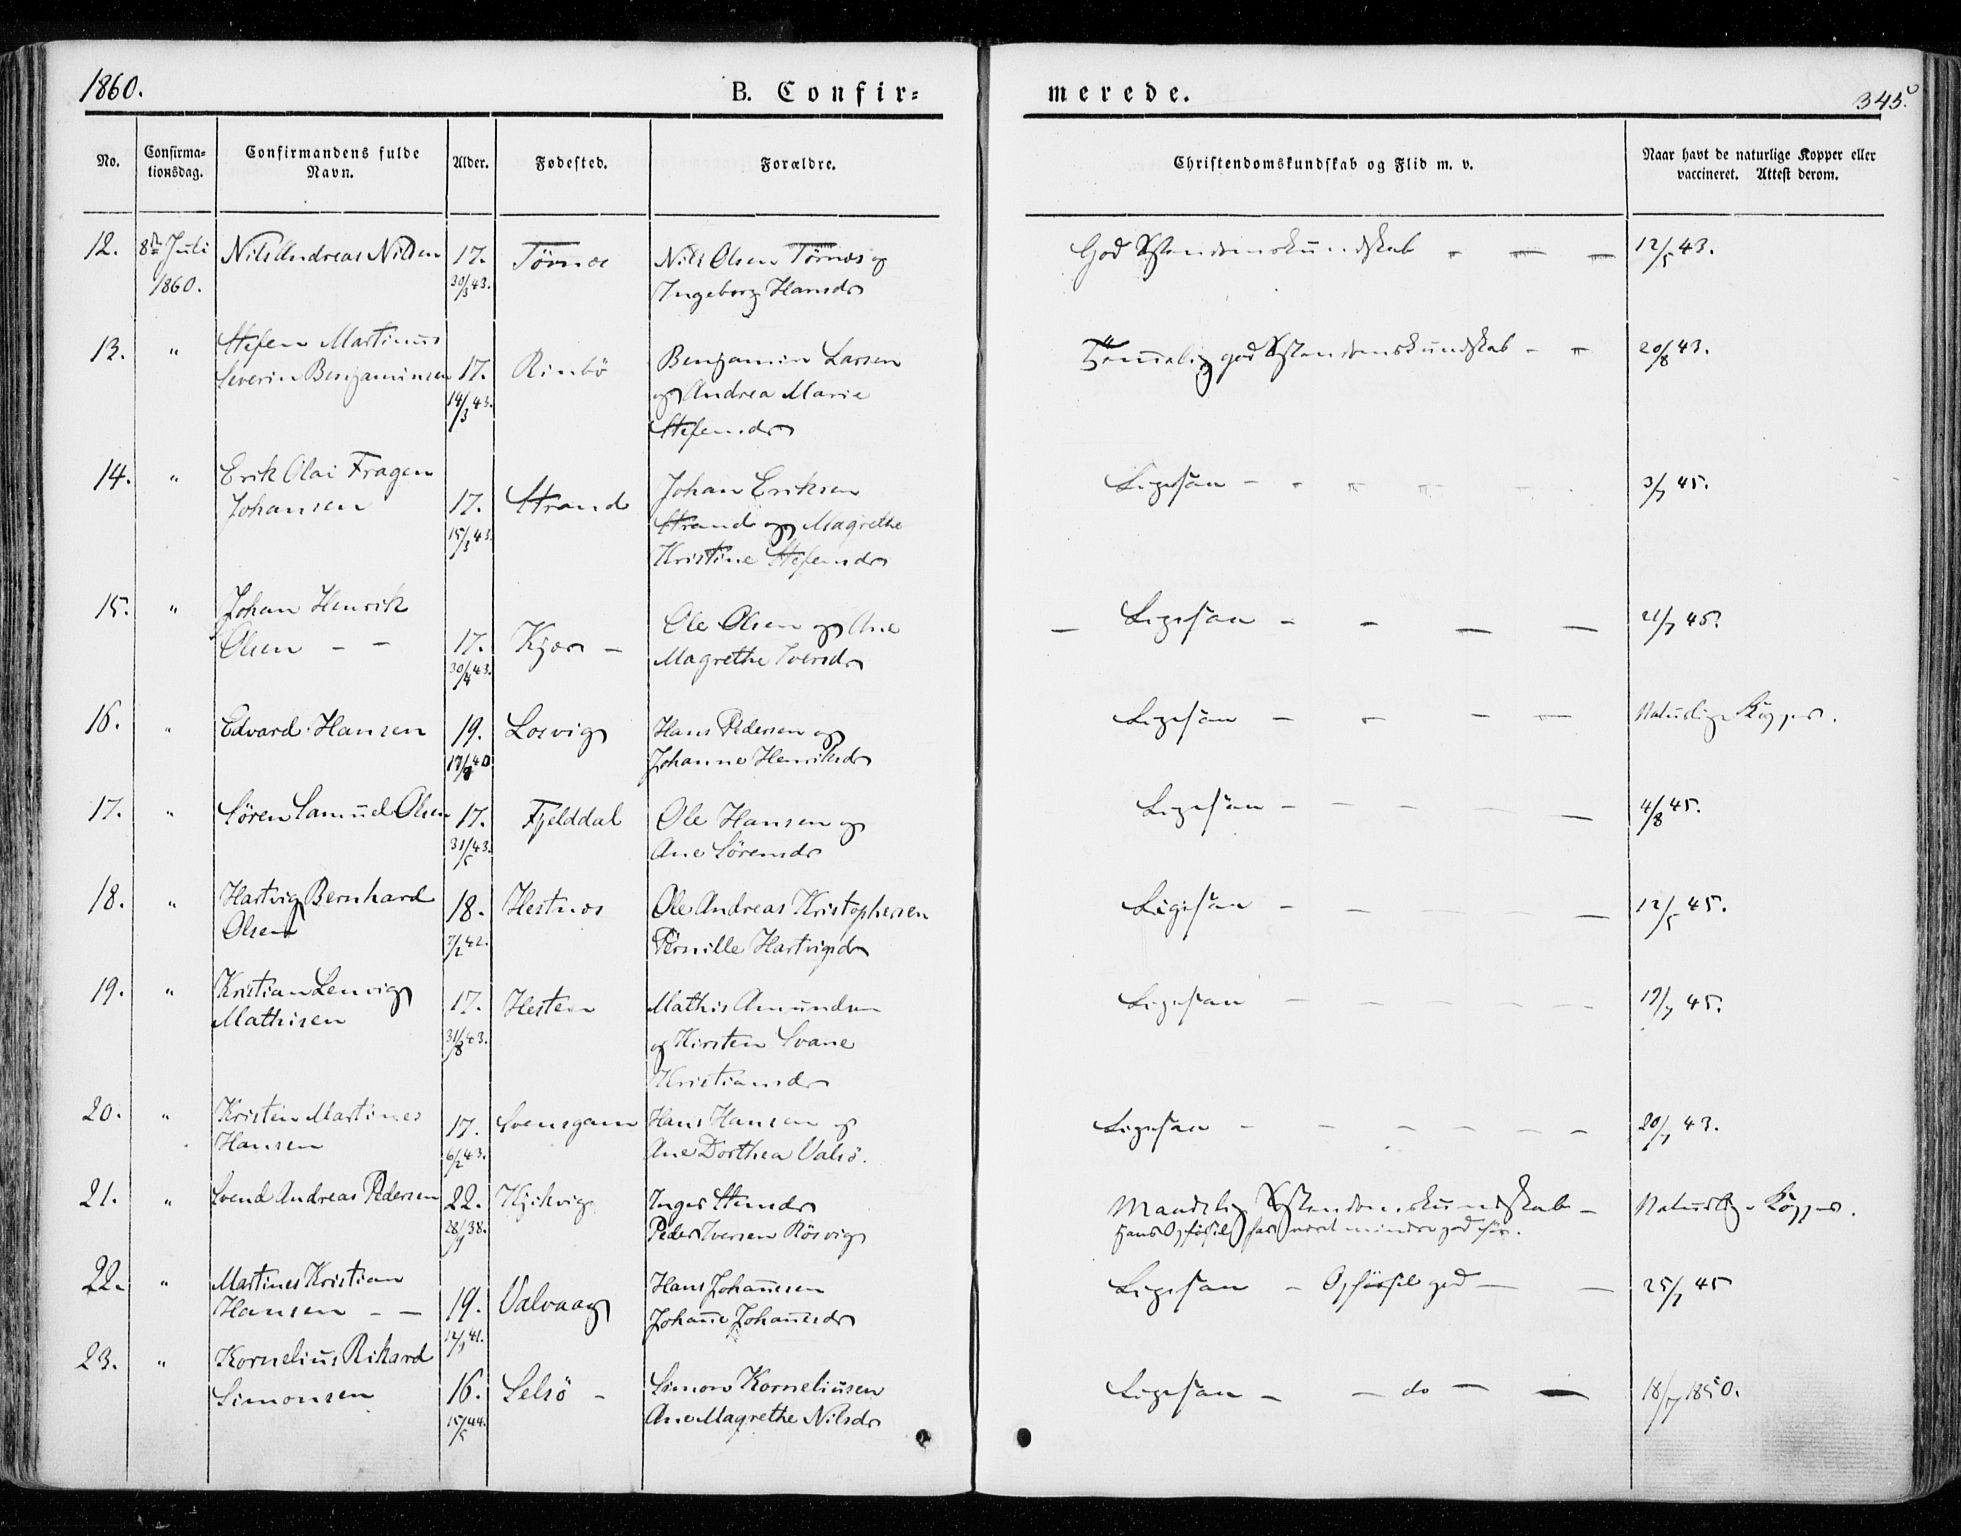 1860.
B. Confir-
merede.
345.
No.
Confirma-
tionsdag.
Confirmandens fulde
Navn.
Alder.
Fødested.
Forældre.
Christendomskundskab og Flid m. v.
Naar havt de naturlige Kopper eller
vaccineret. Attest derom.
12. 8de Juli Nils Andreas Nilsen 17. Nils Olsen Tørnæs og 12/5 43.
1860. 30/3 43. Ingeborg Hansdr
13. " Stefen Martinus
Severin Benjaminsen 17. Rinbö Benjamin Larsen 20/8 43.
14/3 43. og Andrea Marie
Stefensdr
14. " Erik Olai Fragen
Johansen 17. Strand Johan Eriksen Ligesaa - 3/7 45.
15/3 43. Strand og Magrethe
Kristine Stefensdr
15. " Johan Henrik
Olsen - - 17. Ole Olsen og Ane Ligesaa - 21/7 45.
30/4 43. Magrethe Iversdr
16. " Edvard Hansen 19. Losvig Hans Pedersen og Ligesaa - Naturlige Kopper.
Johanne Henriksdr
17. " Sören Samuel Olsen 17. Fjelddal Ole Hansen og Ligesaa - 4/8 45.
31/5 43. Ane Sörensdr
18. " Hartvig Bernhard
Olsen 18. Hestnæs Ole Andreas Kristophersen Ligesaa - 12/5 45.
7/2 42. Pernille Hartvigsdr
19. " Kristian Lenvig
Mathisen 17. Mathis Amundsen Ligesaa - 19/7 45.
31/8 43. og Kirsten Svane
Kristiansdr
20. " Kristen Martines
Hansen 17. Svensgam Hans Hansen og Ligesaa - 20/7 43.
6/2 43. Ane Dorthea Valsö.
21. " Svend Andreas Pedersen 22. Kjikvig Inger Stensdr Maadelig Xstendomskundskab - Naturlige Kopper.
Peder Iversen Rösvig hans Opførsel har været mindre god før.
22. " Martines Kristian
Hansen - - 19. Valvaag Hans Johannesen Ligesaa - Opførsel god - 25/7 45
Johanne Johannesdr
23. " Kornelius Rikard
Simonsen 16. Selsö - Simon Korneliusen Ligesaa - - do - 18/7 1850.
15/5 44. Ane Magrethe Nilsdr